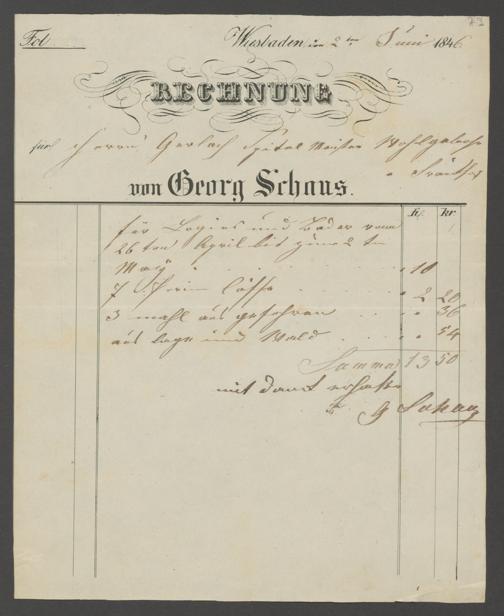 73
Fol
Wiesbaden den 2ten Juni 1846
RECHNUNG
für Herrn Gerlach Spital Meister Wohlgeboren
von Georg Schaus.
fl. kr
für Logies und Bäder vom
26ten April bis zum 2tn
May 10
7 2 20
3 mahl aus gefahren 36
aus lage und Wald 54
Summa 13 50
mit Dank erhalten
G Schaus